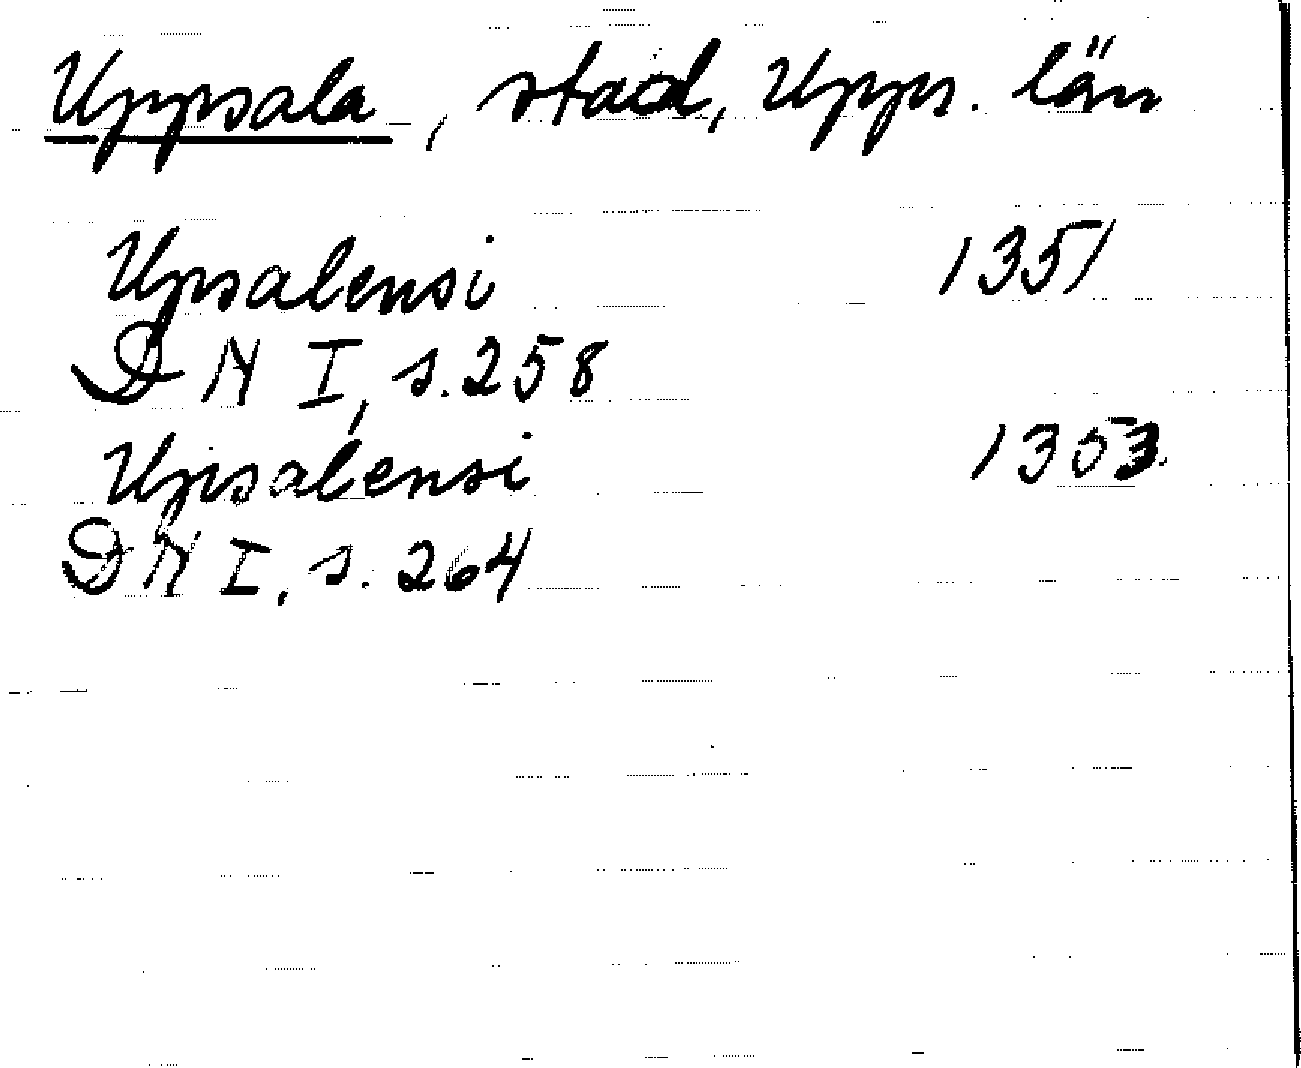 Uppsala, stad, Upps. län
Upsalensi 1351
DN I, s. 258
Upsalensi 1353
DN I, s. 264